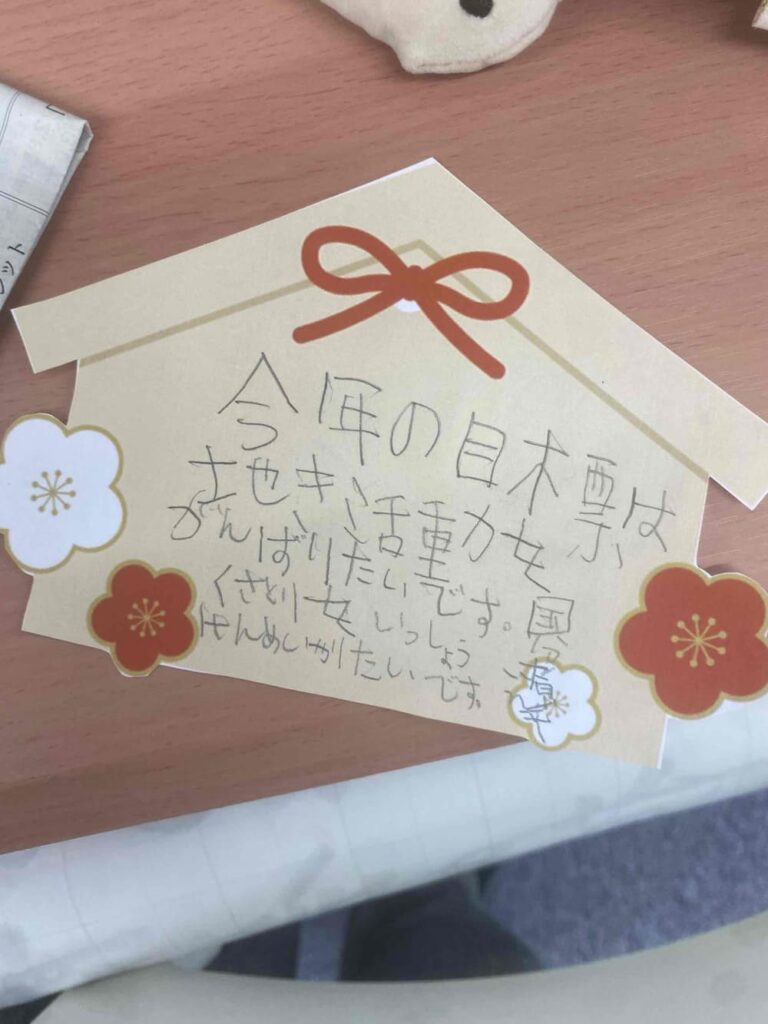 今年の目標は
地き活動を
がんばりたいです。
くさとりをいっしょう
けんめいがりたいです。
ット